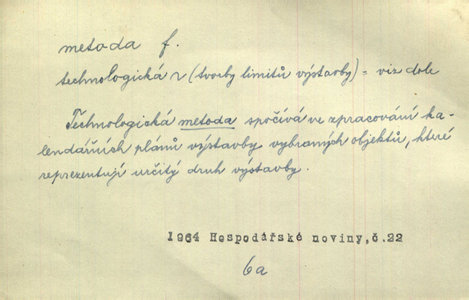 metoda f.
technologická ~ (tvorby limitů výstavby) = viz dole
Technologická metoda spočívá ve zpracování ka-
lendářních plánů výstavby vybraných objektů, které
reprezentují určitý druh výstavby.
1964 Hospodářské noviny, č. 22
6a